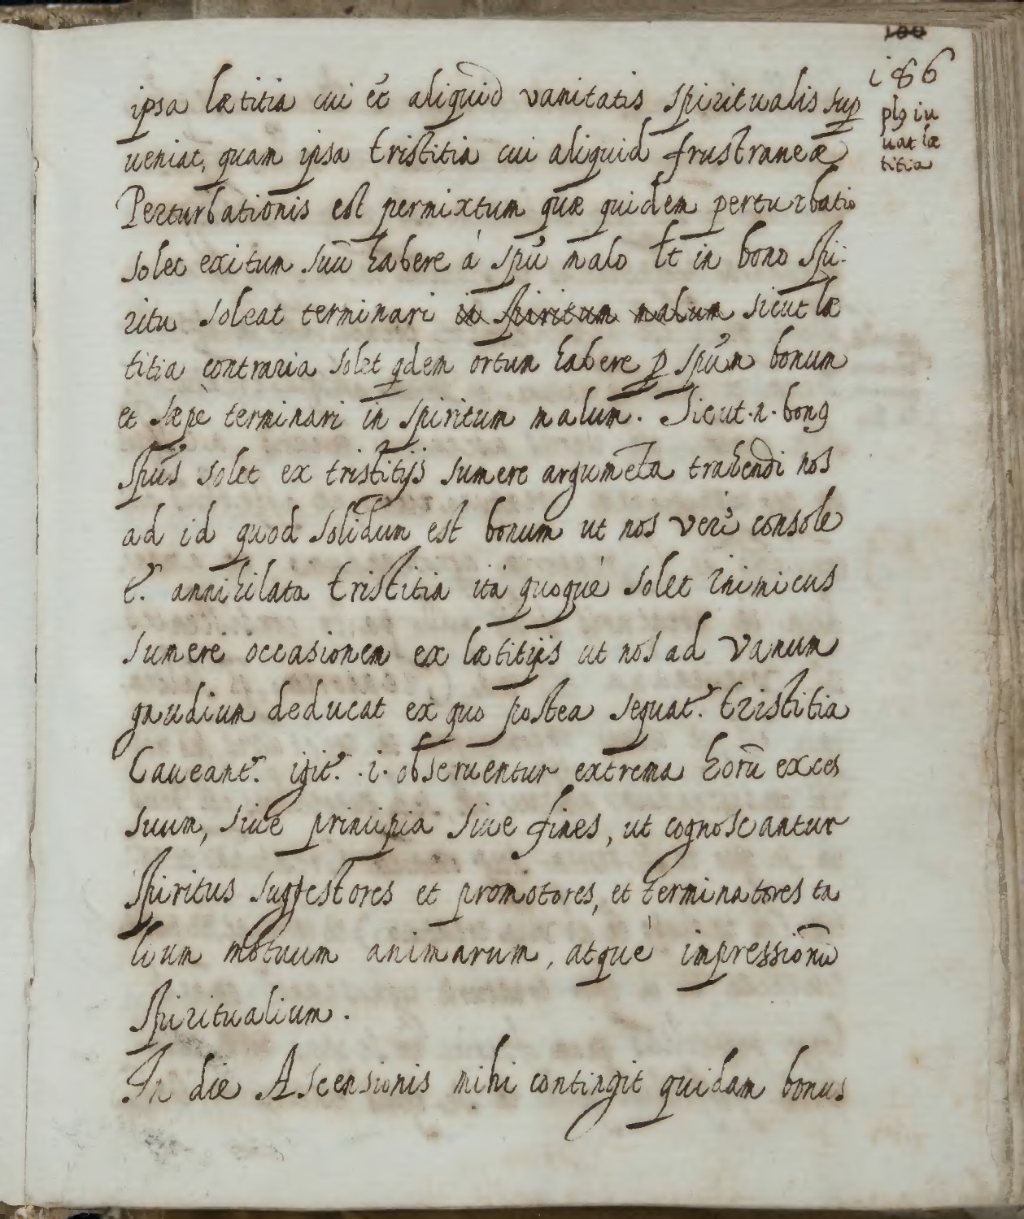 186
plꝰ iu
uat læ
titia
ipsa lætitia cui et aliquid vanitatis spiritualis sup
ueniat, quam ipsa tristitia cui aliquid frustraneæ
Perturbationis est permixtum quæ quidem perturbatio
solet exitum suū habere á spũ malo Et in bono spi:
ritu soleat terminari in spiritum malum sicut læ
titia contraria solet qdem ortum habere p spũm bonum
et sæpè terminari in spiritum malum. Sicut .n. bonꝰ
spũs solet ex tristitijs sumere argumẽta trahendi nos
ad id quod solidum est bonum ut nos verè console
t̃. annihilata tristitia itá quoquè solet inimicus
sumere occasionem ex lætitijs ut nos ad vanum
gaudium deducat ex quo postea sequat̃. tristitia
Caveant̃. igit̃. .i. obseruentur extrema horũ exces
suum, siue principia siue fines, ut cognoscantur
spiritus suggestores et promotores, et terminatores ta
lium motuum animarum, atquè impressionũ
spiritualium.
In die Ascensionis mihi contingit quidam bonus